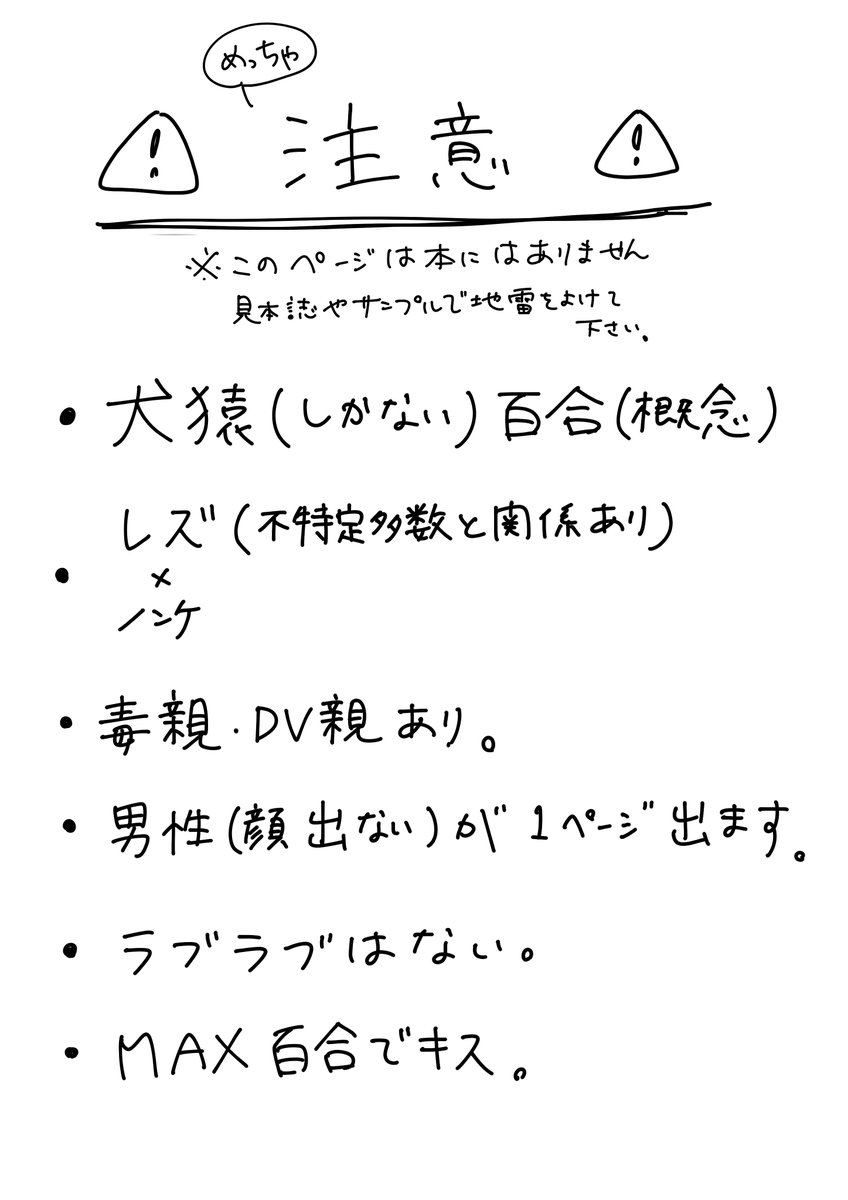 めっちゃ
注意
※このページは本にはありません
見本誌やサンプルで地雷をよけて
下さい。
・犬猿(しかない)百合(概念)
レズ(不特定多数と関係あり)
・×
ノンケ
・毒親・DV親あり。
・男性(顔出ない)が1ページ出ます。
・ラブラブはない。
・MAX百合でキス。